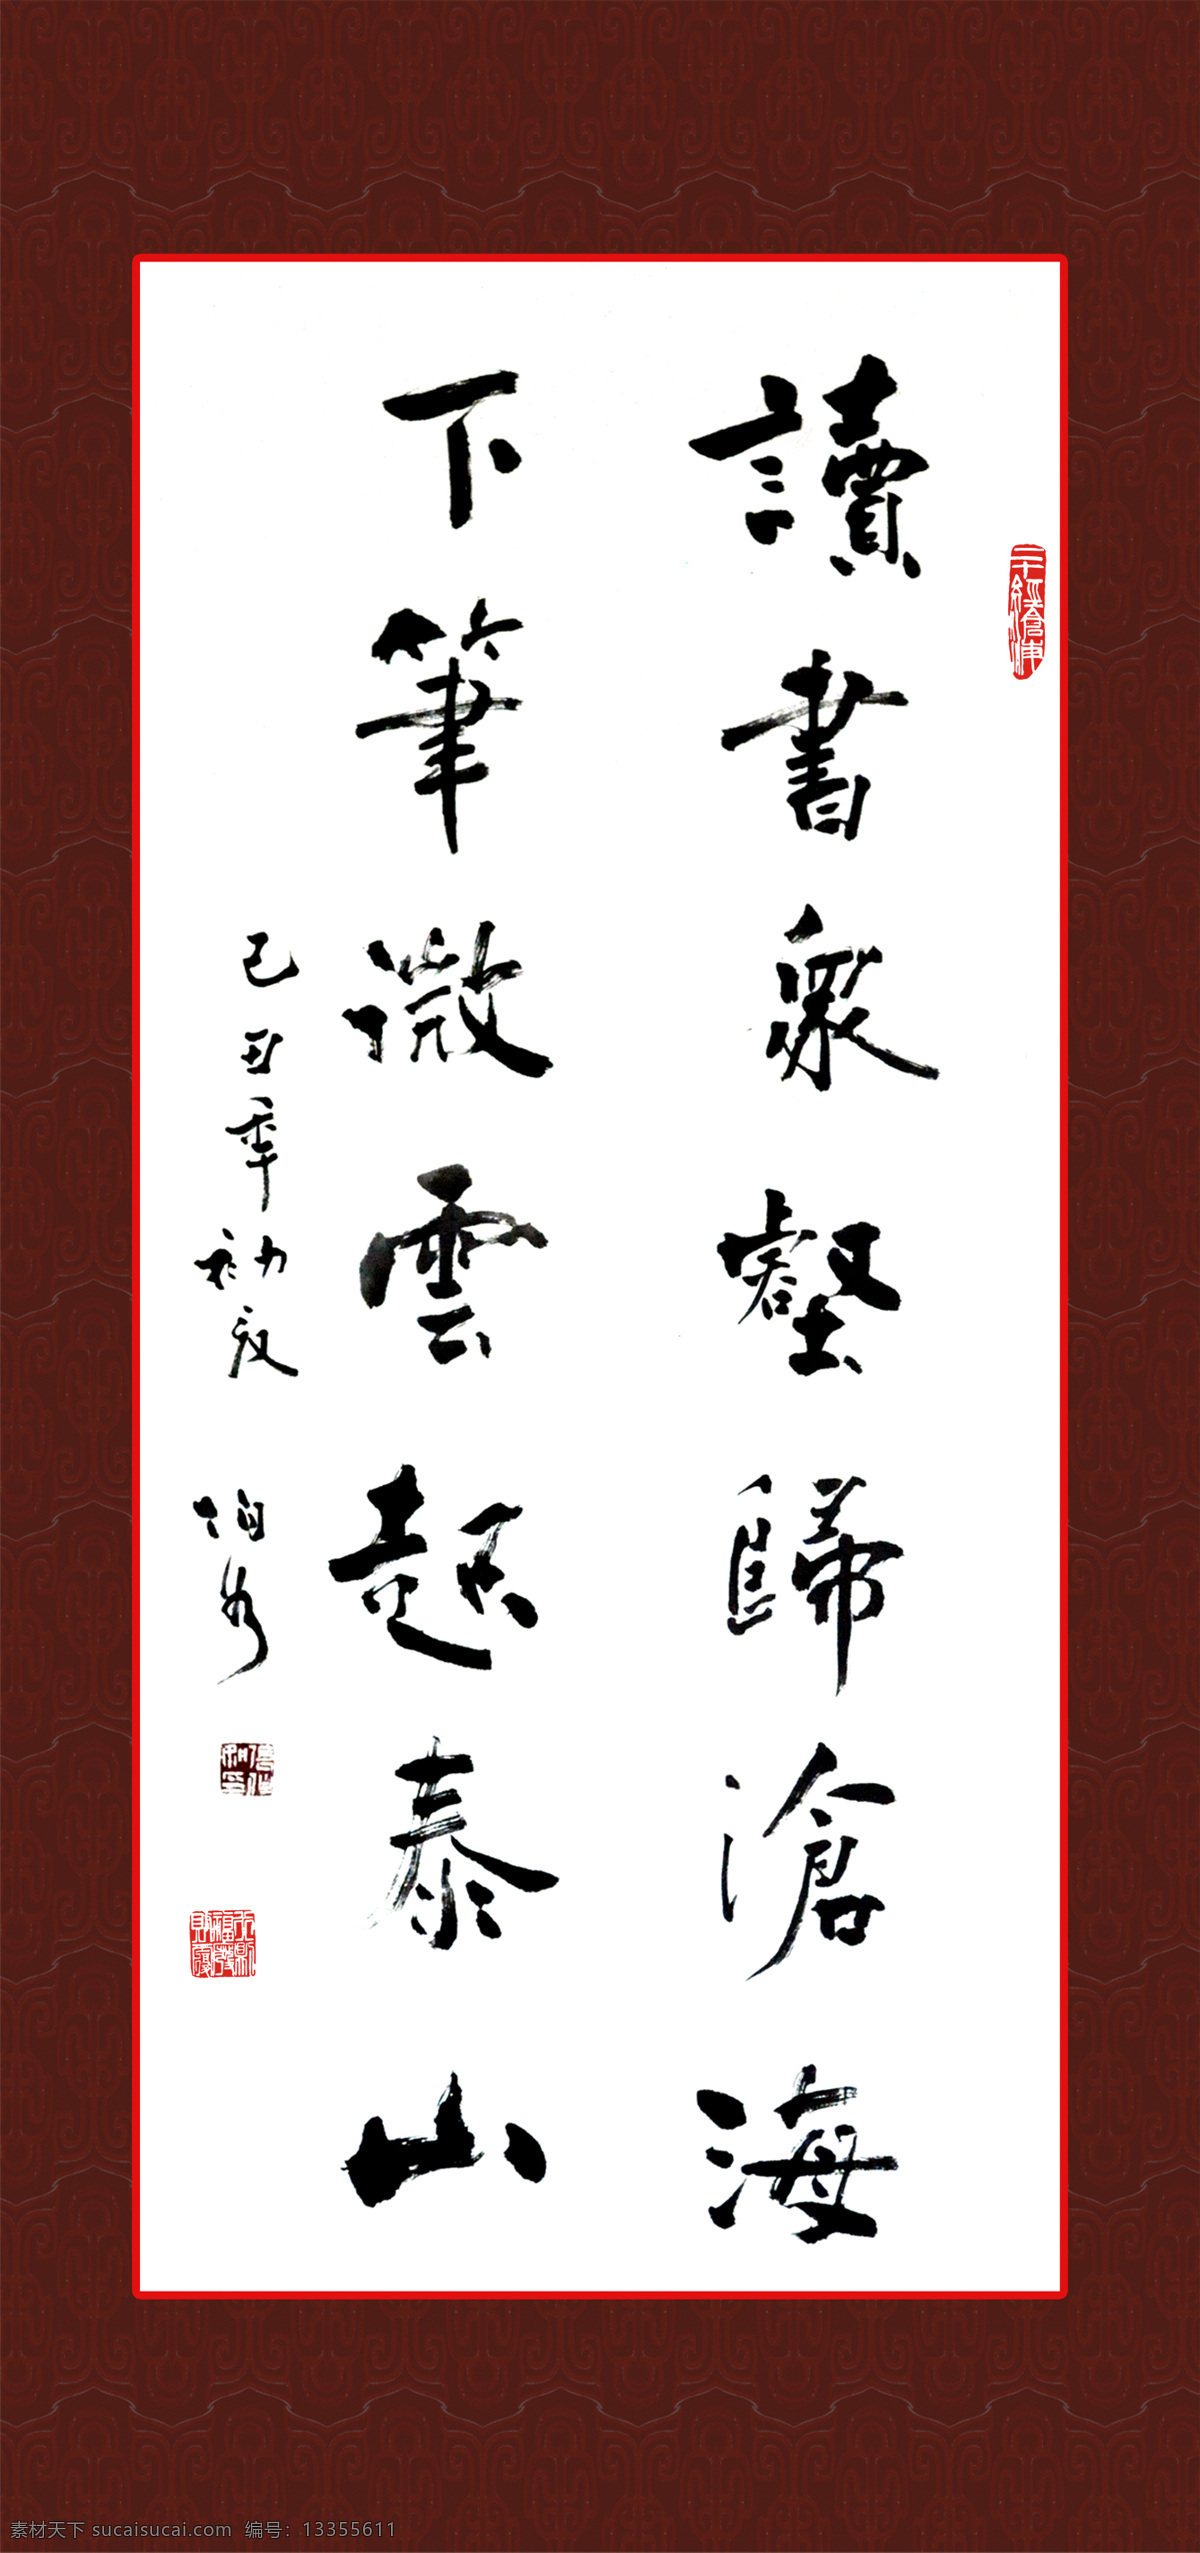 讀書衆壑歸滄海
下筆微雲起泰山
己丑年初夏
素材天下 sucaisucai.com 编号：13355611